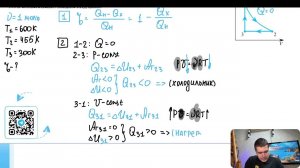 D=1 моль
T₁=600K
T₂=455K
T₃=300K
η-?
1 η = (Qн-Qх)/Qн = 1 - Qх/Qн
2 1-2: Q=0
2-3: P-const
Q₂₃ = ΔU₂₃ + A₂₃
A₂₃<0
ΔU₂₃<0 } Q₂₃<0 => (холодильник)
3-1: V-const
Q₃₁ = ΔU₃₁ + A₃₁
A₃₁=0
ΔU₃₁>0 } Q₃₁>0 => (нагрев